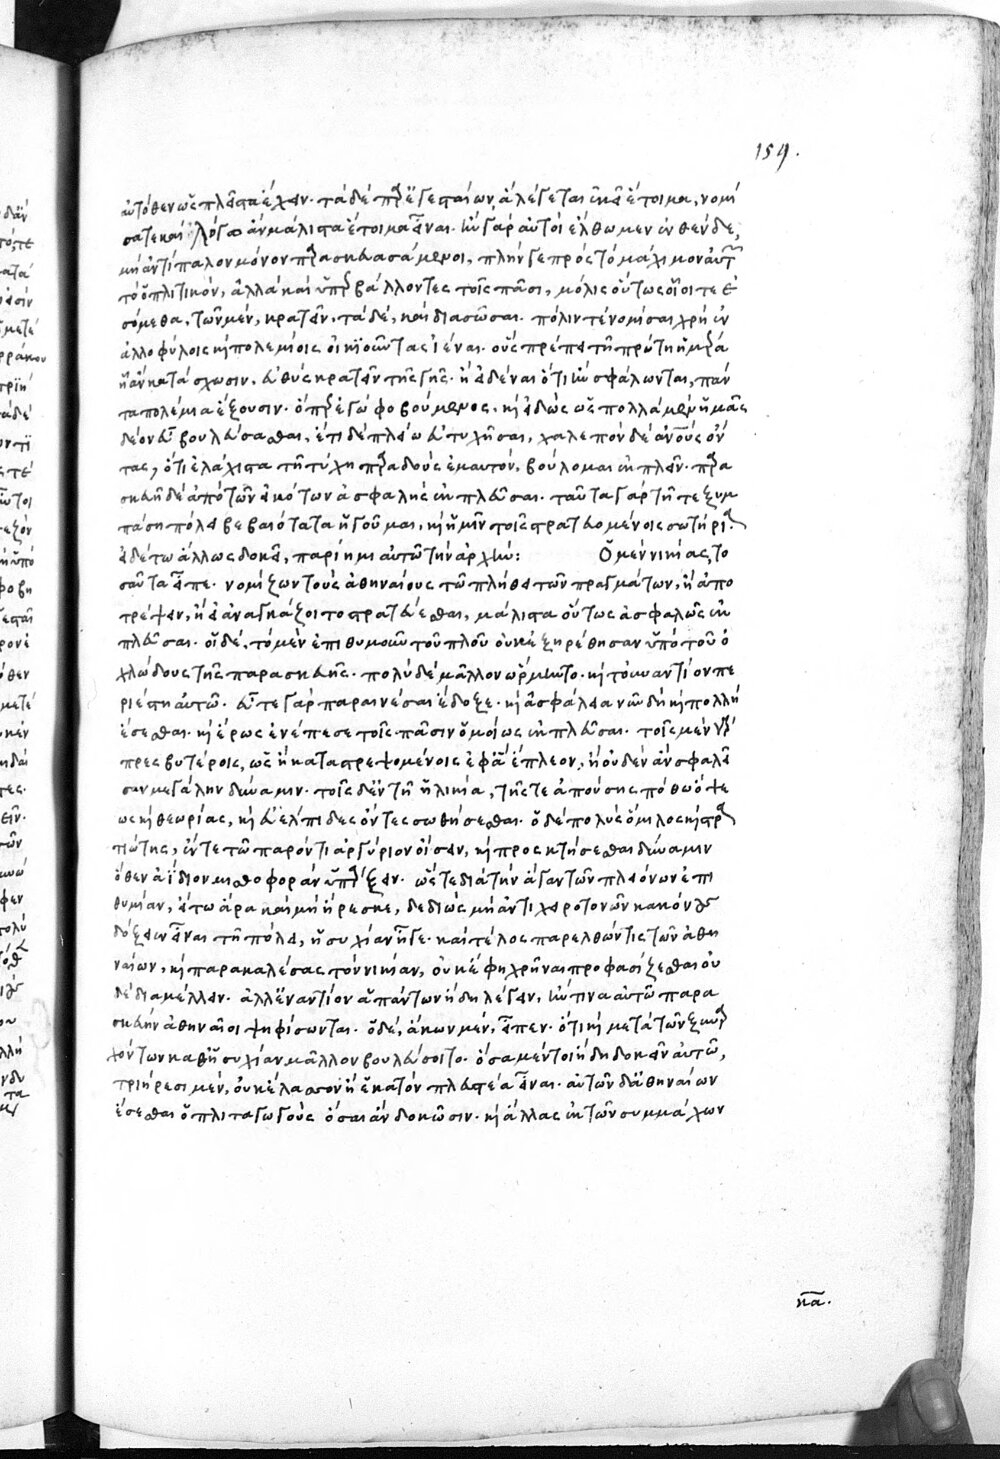 159.
αὐτόθεν ὡς πλεῖστα ἔχειν. τὰ δὲ παρ' ἐγεσταίων, ἃ λέγεται ἐκεῖ ἕτοιμα, νομί
σατε καὶ λόγῳ ἂν μάλιστα ἕτοιμα εἶναι. ἢν γὰρ αὐτοὶ ἔλθωμεν ἐνθένδε,
μὴ ἀντίπαλον μόνον παρασκευασάμενοι, πλήν γε πρὸς τὸ μάχιμον αὐτῶν
τὸ ὁπλιτικόν, ἀλλὰ καὶ ὑπερβάλλοντες τοῖς πᾶσι, μόλις οὕτως οἷοί τε ἐ
σόμεθα, τῶν μέν, κρατεῖν. τὰ δέ, καὶ διασῶσαι. πόλιν τε νομίσαι χρὴ ἐν
ἀλλοφύλοις καὶ πολεμίοις οἰκιοῦντας ἰέναι. οὓς πρέπει τῇ πρώτῃ ἡμέρᾳ
ᾗ ἂν κατάσχωσιν, εὐθὺς κρατεῖν τῆς γῆς. ἢ εἰδέναι ὅτι ἢν σφάλωνται, πάν
τα πολέμια ἕξουσιν. ὅπερ ἐγὼ φοβούμενος. καὶ εἰδὼς ὡς πολλὰ μὲν ἡμᾶς
δέον εὖ βουλεύσασθαι, ἔτι δὲ πλείω εὐτυχῆσαι, χαλεπὸν δὲ ἀνους ὄν
τας, ὅτι ἐλάχιστα τῇ τύχῃ παραδοὺς ἐμαυτόν, βούλομαι ἐκπλεῖν. παρα
σκευῇ δὲ ἀπὸ τῶν εἰκότων ἀσφαλὴς ἐκπλεῦσαι. ταῦτα γὰρ τῇ τε ξυμ
πάσῃ πόλει βεβαιότατα ἡγοῦμαι, καὶ ἡμῖν τοῖς στρατευομένοις σωτήρια.
εἰ δέ τῳ ἄλλως δοκεῖ, παρίημι αὐτῷ τὴν ἀρχήν: Ὁ μὲν νικίας, το
σαῦτα εἶπε. νομίζων τοὺς ἀθηναίους τῷ πλήθει τῶν πραγμάτων, ἢ ἀπο
τρέψειν, ἢ εἰ ἀναγκάζοιτο στρατεύεσθαι, μάλιστα οὕτως ἀσφαλῶς ἐκ
πλεῦσαι. οἱ δέ, τὸ μὲν ἐπιθυμοῦν τοῦ πλοῦ οὐκ ἐξῃρέθησαν ὑπὸ τοῦ ὀ
χλώδους τῆς παρασκευῆς. πολὺ δὲ μᾶλλον ὥρμηντο. καὶ τοὐναντίον πε
ριέστη αὐτῷ. εὖ τε γὰρ παραινέσαι ἔδοξε. καὶ ἀσφάλεια νῦν δὴ καὶ πολλὴ
ἔσεσθαι. καὶ ἔρως ἐνέπεσε τοῖς πᾶσιν ὁμοίως ἐκπλεῦσαι. τοῖς μὲν γὰρ
πρεσβυτέροις, ὡς ἢ καταστρεψομένοις ἐφ' ἃ ἔπλεον, ἢ οὐδὲν ἂν σφαλεῖ
σαν μεγάλην δύναμιν. τοῖς δ' ἐν τῇ ἡλικίᾳ, τῆς τε ἀπούσης πόθῳ ὄψε
ως καὶ θεωρίας, καὶ εὐέλπιδες ὄντες σωθήσεσθαι. ὁ δὲ πολὺς ὅμιλος καὶ στρα
τιώτης, ἔν τε τῷ παρόντι ἀργύριον οἴσειν, καὶ προσκτήσεσθαι δύναμιν
ὅθεν ἀΐδιον μισθοφορὰν ὑπάρξειν. ὥστε διὰ τὴν ἄγαν τῶν πλεόνων ἐπι
θυμίαν, εἴ τῳ ἄρα καὶ μὴ ἤρεσκε, δεδιὼς μὴ ἀντιχειροτονῶν κακόνους
δόξειεν εἶναι τῇ πόλει, ἡσυχίαν ἦγε. καὶ τέλος παρελθών τις τῶν ἀθη
ναίων, καὶ παρακαλέσας τὸν νικίαν, οὐκ ἔφη χρῆναι προφασίζεσθαι οὐ
δὲ διαμέλλειν. ἀλλ' ἐναντίον ἁπάντων ἤδη λέγειν, ἥν τινα αὐτῷ παρα
σκευὴν ἀθηναῖοι ψηφίσωνται. ὁ δέ, ἄκων μέν, εἶπεν. ὅτι καὶ μετὰ τῶν ξυναρ
χόντων καθ' ἡσυχίαν μᾶλλον βουλεύσοιτο. ὅσα μέντοι ἤδη δοκεῖν αὐτῷ,
τριήρεσι μέν, οὐκ ἔλασσον ἢ ἑκατὸν πλευστέα εἶναι. αὐτῶν δ' ἀθηναίων
ἔσεσθαι ὁπλιταγωγοὺς ὅσαι ἂν δοκῶσιν. καὶ ἄλλας ἐκ τῶν συμμάχων
κα.